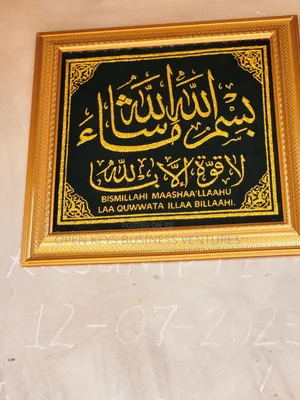 بسم الله ما شاء الله
لا قوة إلا بالله
BISMILLAHI MAASHAA'LLAAHU
LAA QUWWATA ILLAA BILLAAHI.
OPEN KEYS BUSINESS VENTURES
12-07-202